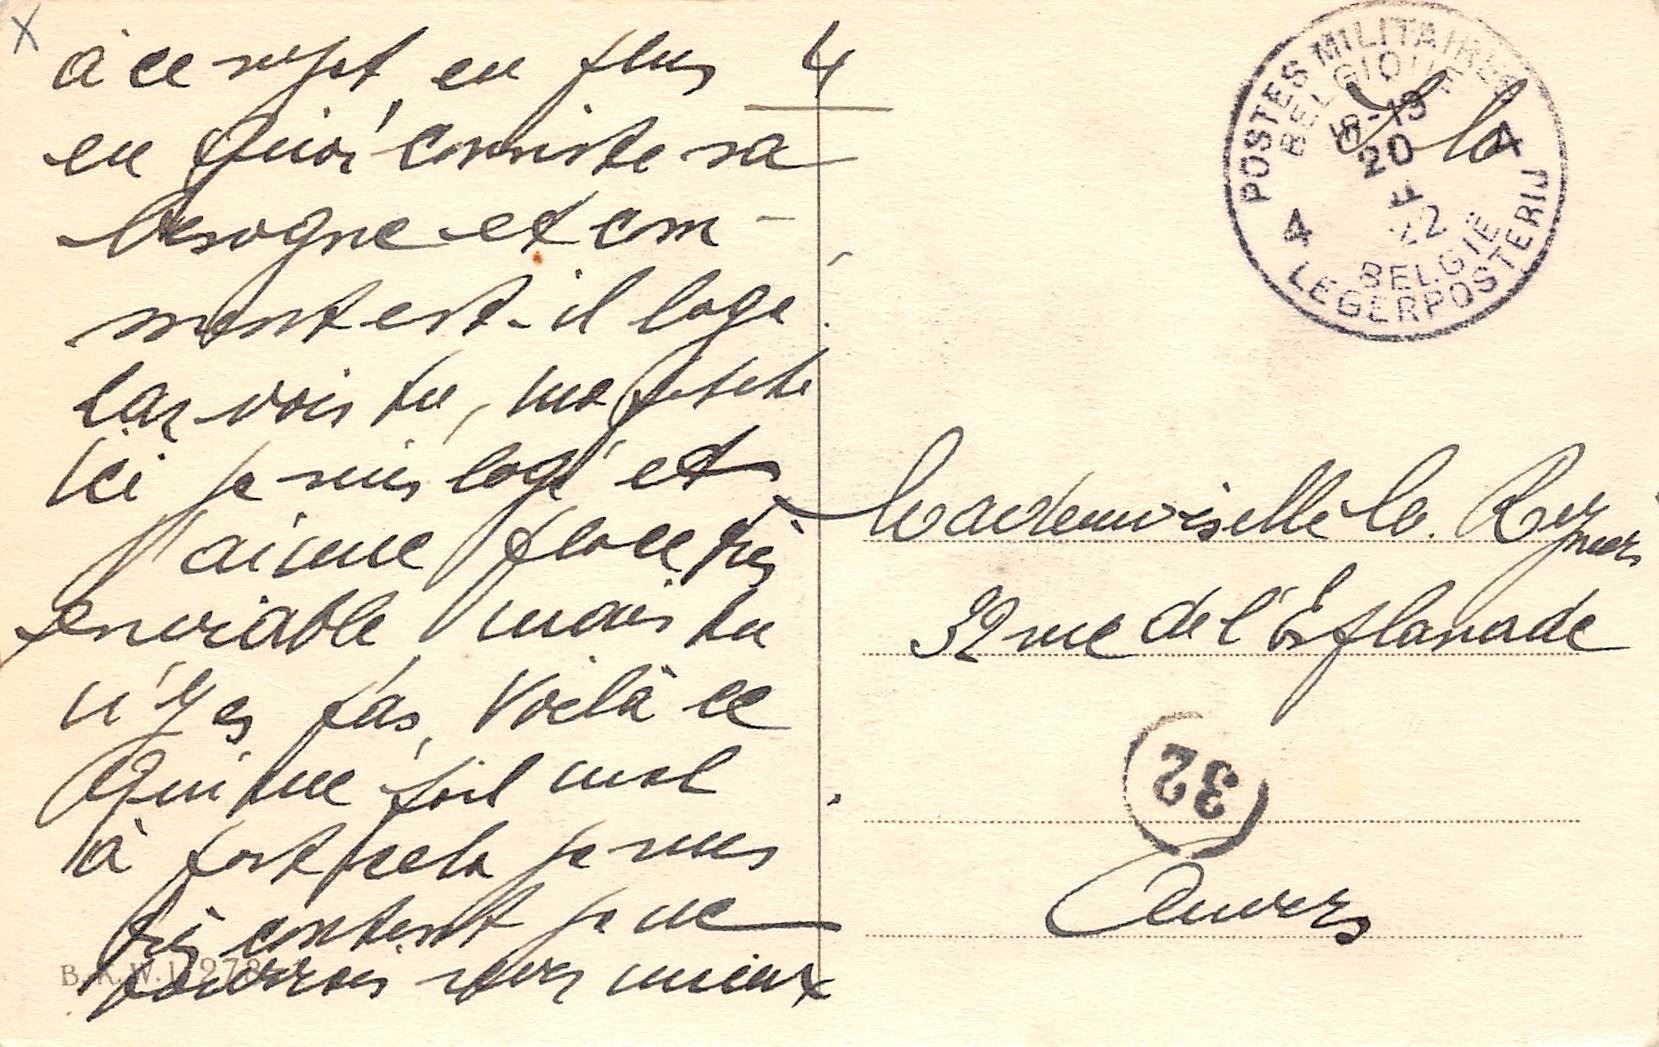 à ce sujet, en plus 4
en quoi consiste sa
besogne et com-
ment est-il logé
Car vois tu, ma petite
ici je suis logé et
aime place très
enviable, mais tu
n'y es pas, Voilà ce
qui me fait mal
à part cela je suis
très content je ne
pourrais être mieux
B.K.W.I. 273
POSTES MILITAIRES
BELGIQUE
18-19
20
22
4 4
BELGIE
LEGERPOSTERIJ
Mademoiselle M. Reyniers
32 rue de l'Esplanade
32
Anvers